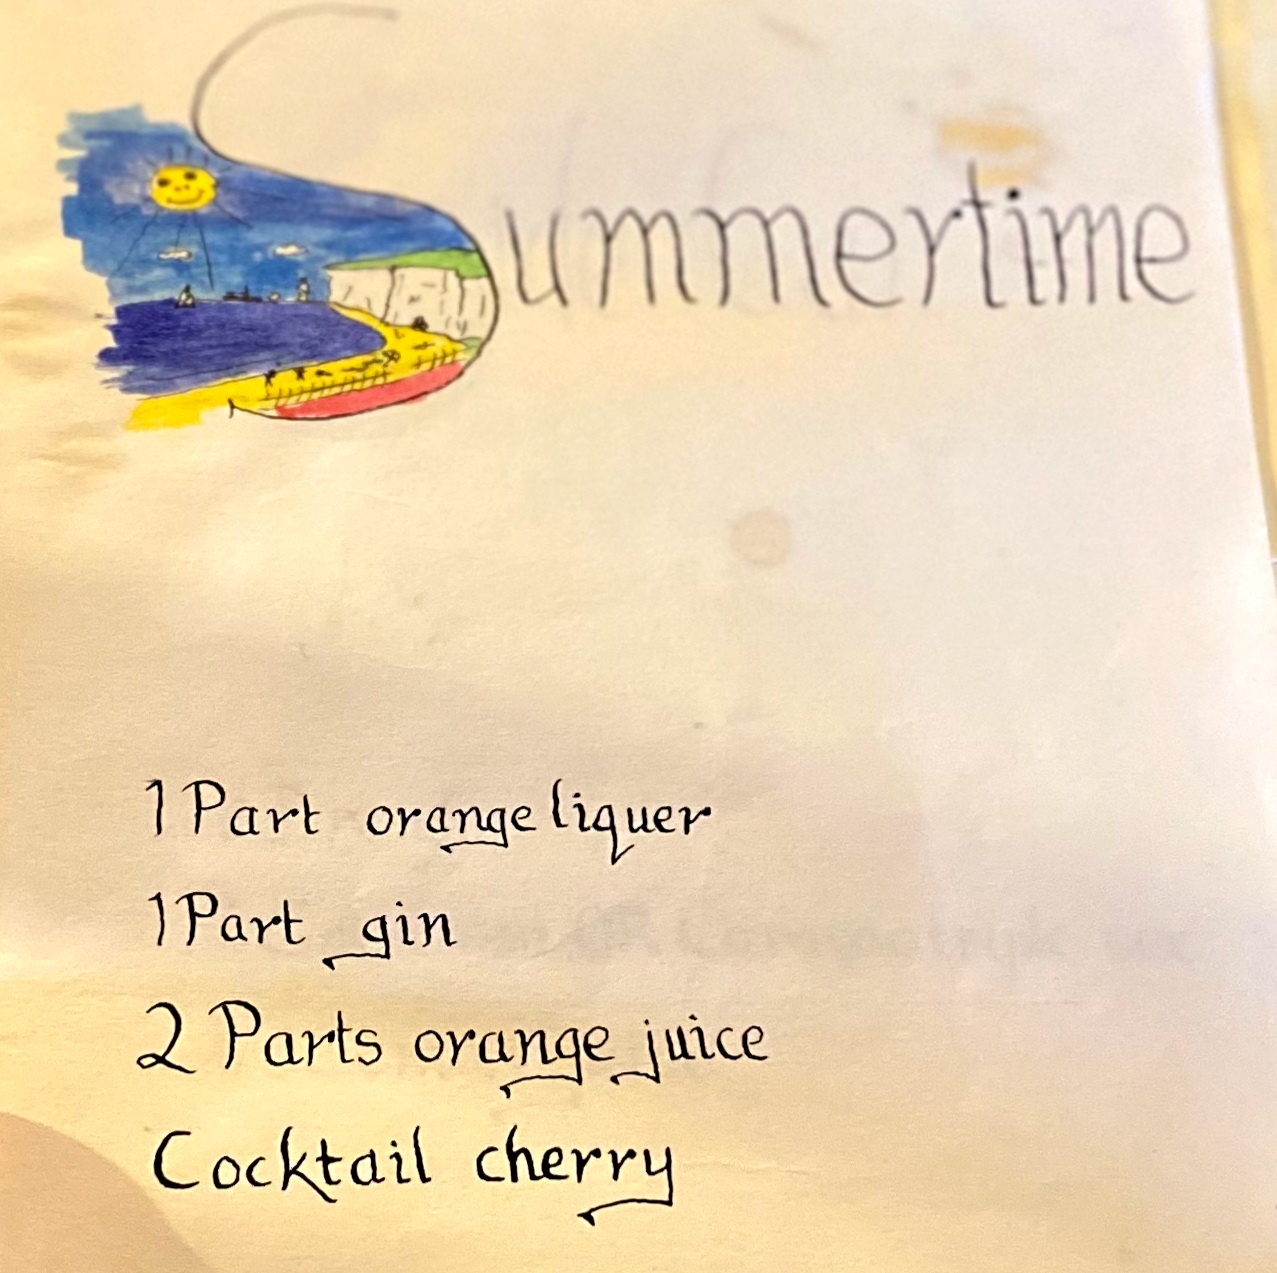 Summertime
1 Part orange liquer
1 Part gin
2 Parts orange juice
Cocktail cherry